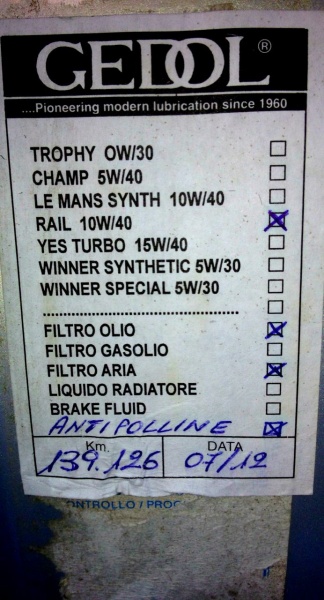 GEDOL®
....Pioneering modern lubrication since 1960
TROPHY 0W/30
CHAMP 5W/40
LE MANS SYNTH 10W/40
RAIL 10W/40
YES TURBO 15W/40
WINNER SYNTHETIC 5W/30
WINNER SPECIAL 5W/30
..........................................
FILTRO OLIO
FILTRO GASOLIO
FILTRO ARIA
LIQUIDO RADIATORE
BRAKE FLUID
ANTIPOLLINE
Km. DATA
139.126 07/12